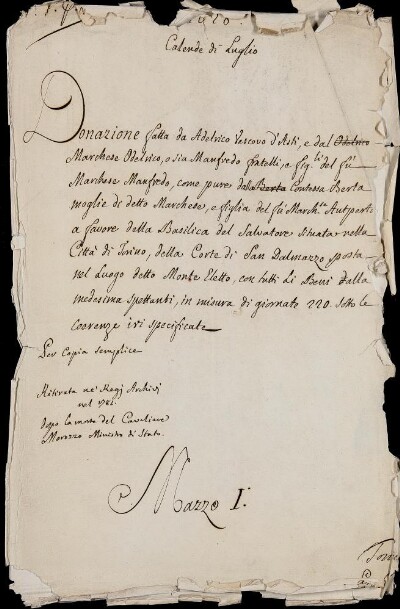 Calende di Luglio
Donazione fatta da Adelrico Vescovo d'Asti, e dal Odelrico
Marchese Odelrico, o sia Manfredo fratelli, e fig.li del fù
Marchese Manfredo, come pure dalla Berta Contessa Berta
moglie di detto Marchese, e figlia del fù March.se Autperto
a favore della Basilica del Salvatore situata nella
Città di Torino, della Corte di San Dalmazzo sposta
nel Luogo detto Monte Eletto, con tutti li Beni dalla
medesima spettanti, in misura di giornate 220. sotto le
coerenze ivi specificate
Per Copia semplice
Ritirata ne' Regj Archivj
nel 1781.
dopo la morte del Cavaliere
Morozzo Ministro di Stato.
Mazzo I.